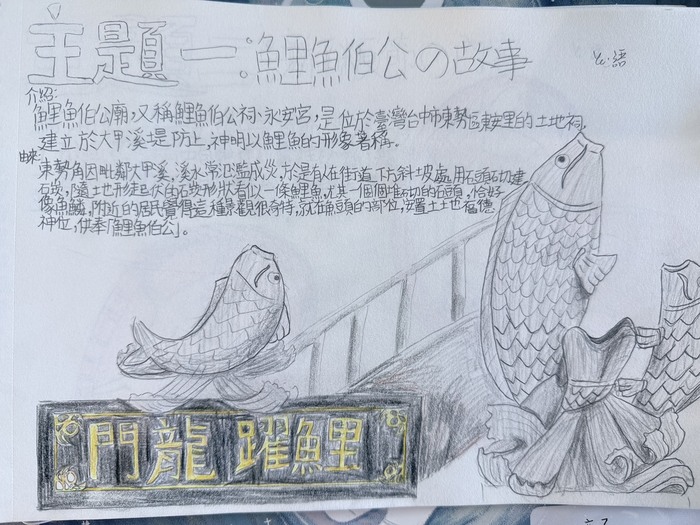 主題一：鯉魚伯公の故事
介紹：
鯉魚伯公廟，又稱鯉魚伯公祠、永安宮，是位於臺灣台中市東勢區東安里的土地祠，
建立於大甲溪堤防上，神明以鯉魚的形象著稱。
由來：
東勢角因毗鄰大甲溪，溪水常氾濫成災，於是有人在街道下方斜坡處，用石頭砌建
石崁，隨土地形徒起伏的石崁形狀看似一條鯉魚，尤其一個個堆砌的石頭，恰好
像魚鱗，附近的居民覺得這種景觀很奇特，就在魚頭的部位，安置土土地福德
神位，供奉「鯉魚伯公」。
門龍躍鯉